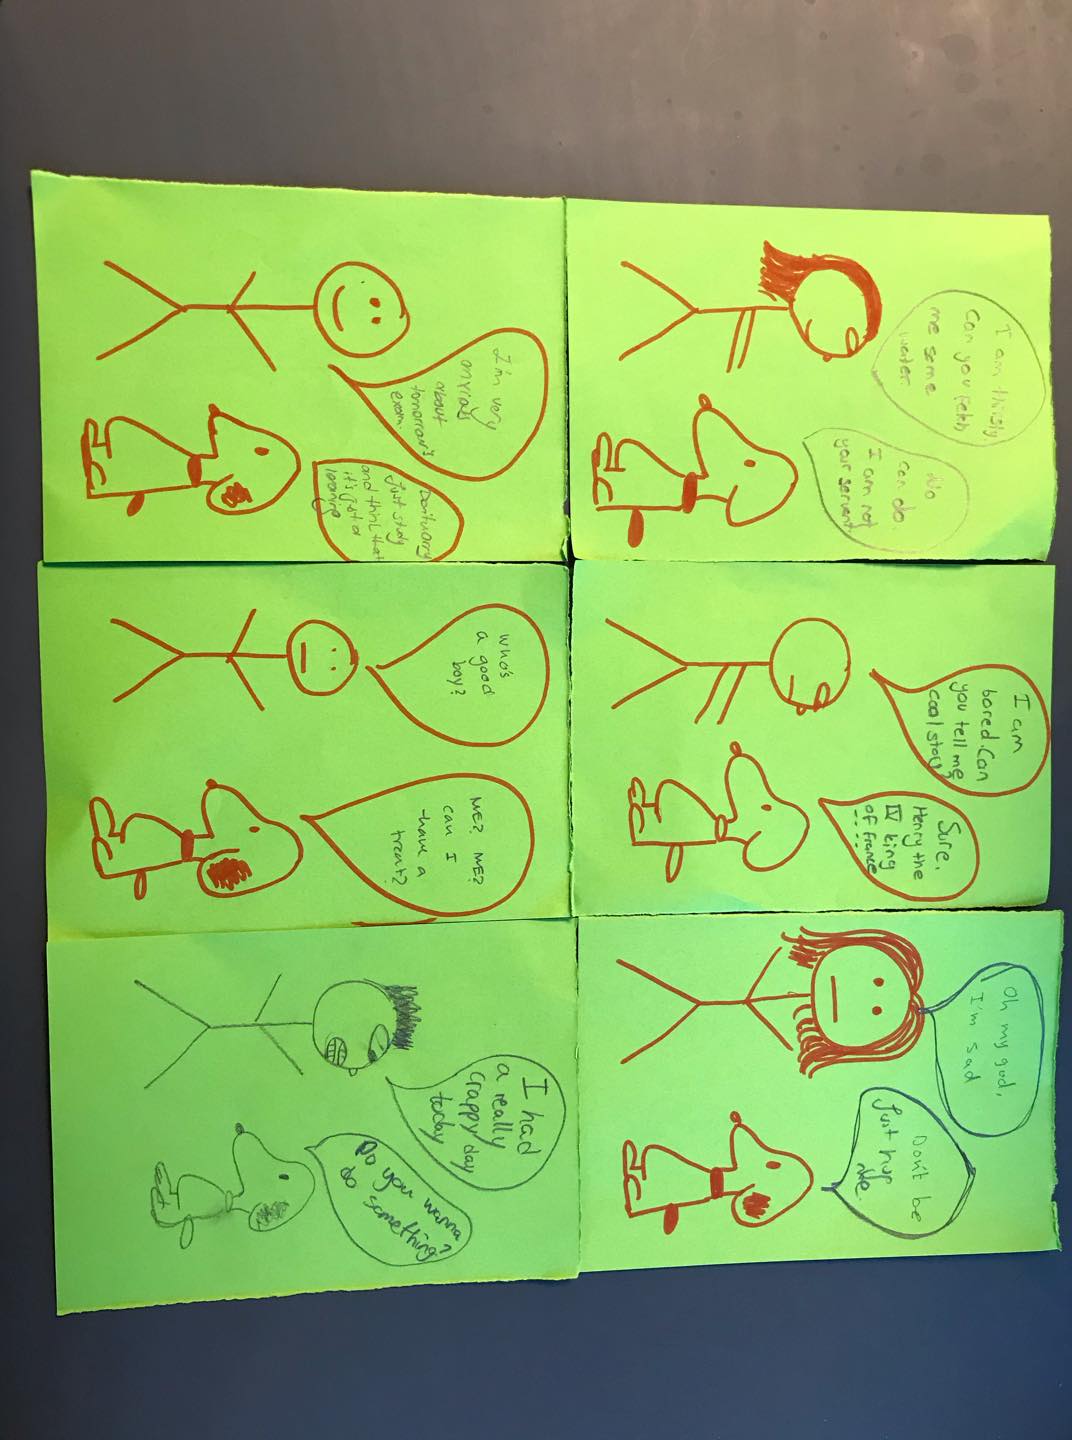 I am thirsty.
Can you fetch
me some
water.
No
can do.
I am not
your servant.
I am
bored. Can
you tell me
cool story?
Sure.
Henry the
IV king
of France
....
Oh my gud,
I'm sad
Don't be
Just hug
me.
I'm very
anxious
about
tomorrow's
exam.
Don't worry
Just study
and think that
it's just a
learning
who's
a good
boy?
ME? ME?
can I
have a
treat?
I had
a really
crappy day
today
Do you wanna
do something?